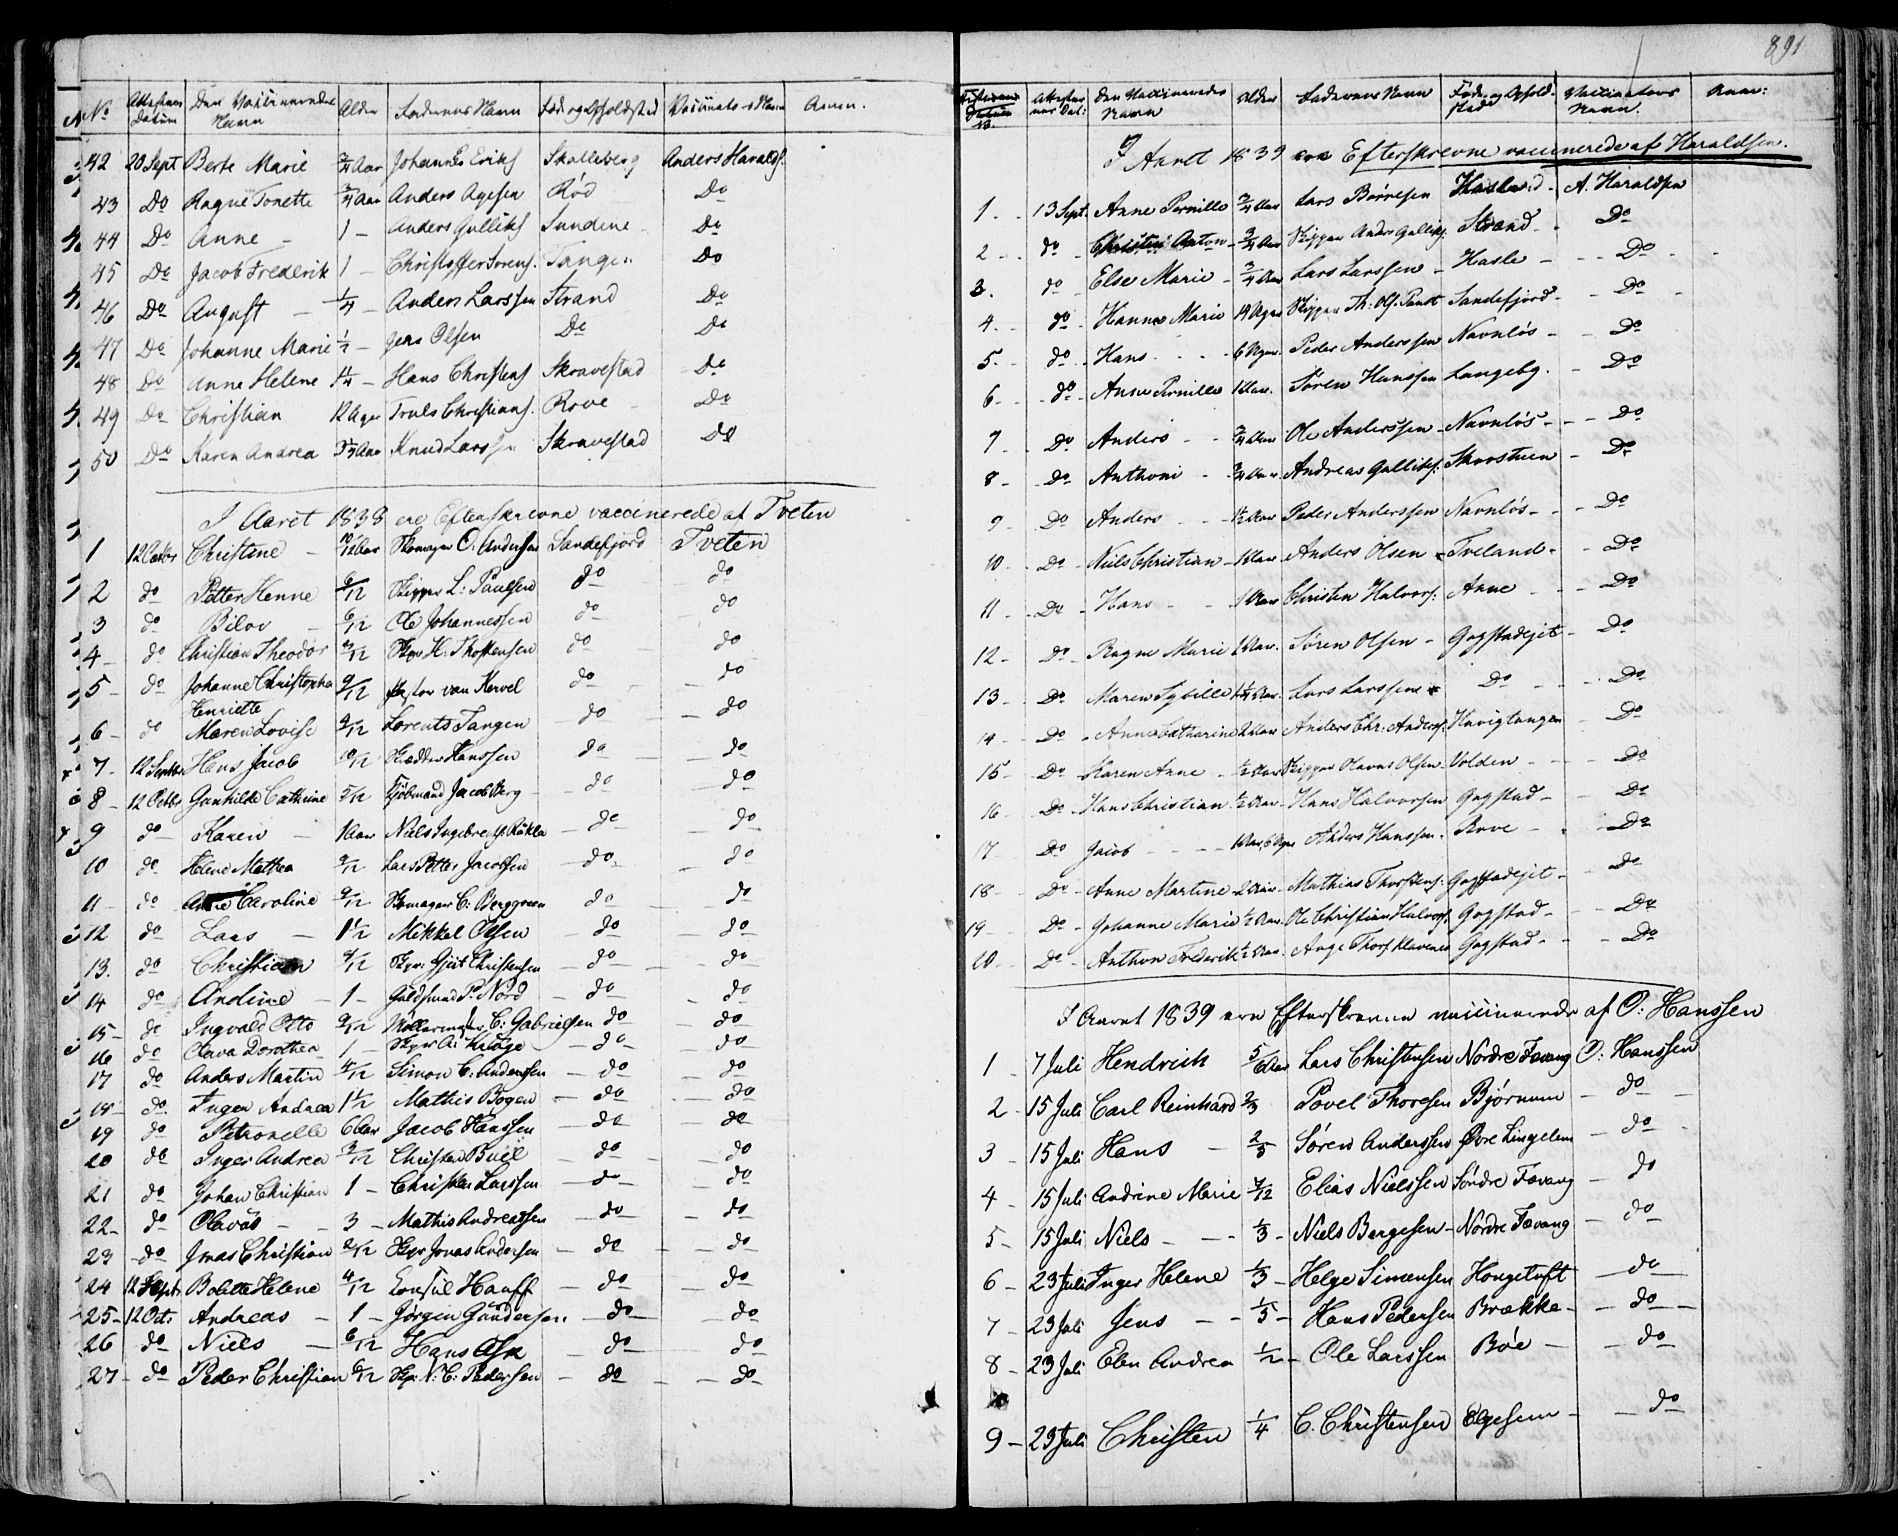 No Attestens Datum Den Vaccineredes Navn Alder Faderens Navn Føde og Opholdsted Vaccinateurs Navn Anm.
42 20 Sept Berte Marie 3/4 Aar Johannes Eriks Skolleberg Anders Haralds.
43 Do Ragne Tonette 3/4 Aar Anders Agesen Rød Do
44 Do Anne - 1 - Anders Golliks Sundene Do
45 Do Jacob Frederik 1 - Christoffer Sørens. Tangen Do
46 Do August - 1/4 - Anders Larssen Strand Do
47 Do Johanne Marie 1/2 - Jens Olsen Do Do
48 Do Anne Helene 1 1/4 - Hans Christens Skravestad Do
49 Do Christian 12 Uger Truls Christians. Rove - Do
50 Do Karen Andrea Aar Knud Larssen Skravestad Do
I Aaret 1838 ere Efterskrevne vaccinerede af Tveten
1 12 Octbr Christine - 10/12 Aar Skomager O. Andersen Sandefjord Tveten
2 do Petter Henne 6/12 Skipper L. Paulsen do do
3 do Bilov - 6/12 Ole Johannessen do do
4 - do Christian Theodor /12 Skpr H. Thostensen do do
5 - do Johanne Christopha Henriette 9/12 Pastor van Kervel do - - do
6 - do Maren Lovise 9/12 Lorents Tangen - do - do
7 - 12 Septbr Hans Jacob 10/12 Skredder Hanssen do - - do
8 - 12 Octbr Gunhilde Cathrine 5/12 Kjøbmand Jacob Berg - do - do
9 do - Karen - 1 Aar Niels Ingebretsen - do - do
10 do Helene Mathea 9/12 Lars Petter Jacobsen - do - do
11 - do Caroline 9/12 Skomager C. Berggreen do - do
12 do Lars - 1 1/2 Mikkel Olsen - do - do
13. do Christian /12 Skpr. Gjert Christensen - do - do
14 do Andine - 1 - Guldsmed P. Nord - do - do
15 - do Ingvald Otto 9/12 Møllersvend C. Gabrielsen do - do
16 do Olava Dorothea 1 - Skpr A. Krøge - do - - do
17 do Anders Martin /12 Simon C. Andersen - do - do
18 - do. Inger Andrea 1 1/2 Mathis Bogen - do - do
19 do Petronelle 6 Aar Jacob Hanssen - do do
20 do Inger Andrea 9/12 Christen Buil - do - do
21 do Johan Christian 1 - Christen Larssen - do - - do
22 - do Olavus - - 3 - Mathis Andreassen - do - do
23 - do Jonas Christian 2/12 Skpr Jonas Andersen - do - do
24 12 Sept Bolette Helene 4/12 Consul Hauff - do - do
25 - 12 Oct. Andreas - 1 - Jørgen Gundersen - do - do
26 do Niels - 6/12 Hans Ask - do - do
27 - do Peder Christian 6/12 Skpr. N. C. Pedersen - do - do
891
Attestens Dat: Den Vaccineredes Navn Alder Faderens Navn Føde og Opholdsted Vaccinateurs Navn. Anm:
I Aaret 1839 ere Efterskrevne vaccinerede af Haraldsen.
1. - 13 Sept. Anne Pernille 3/4 Aar Lars Børresen Hasle A. Haraldsen
2 - do Christen Anton - 3/4 Aar Skipper Anders Golliks. Strand - Do
3. do Else Marie - 3/4 Aar Lars Larssen - Hasle - - Do
4. - do - Hanne Marie 14 Uger Skipper Th: Ols. Sandefjord - - Do
5. - do. Hans - - - 6 Uger. Peder Anderssen Navnløs - - Do
6 - - do - Anne Pernille 1 Aar. Søren Hanssen Langeby. - Do
7 - Do Anders - - 3/4 Aar Ole Anderssen - Navnløs - - - Do
8 - - Do - Anthoni - 3/4 Aar Andreas Golliks. Skorstuen - Do
9 - Do Anders - - 1/2 Aar Peder Anderssen Navnløs - - Do
10 - Do - Niels Christian - 1 Aar Anders Olsen - Tveland - - Do
11 - - Do - Hans - - 1 Aar Christen Halvors: Anne - - - Do
12 - Do - Ragne Marie 1 Aar. Søren Olsen - Gogstadejet - Do
13 - Do - Maren Sybille 1 1/4 Aar. Lars Larssen Do - - Do
14 - Do - Anne Catharine 2 Aar Anders Chr: Anders. Huvigtangen - Do
15 - Do - Karen Anne - 1/2 Aar Skipper Olavus Olsen - Volden - - Do
16 Do - Hans Christian 1/2 Aar - Hans Halvorsen Gogstad - - Do
17 - - Do Jacob - - - - 1 Aar, 6 Uger Anders Hanssen. Rove - - Do
18 - Do - Anne Martine - 2 Aar - Mathias Thorstens: Gogstadejet - do
19 - - Do - Johanne Marie 1/2 Aar. Ole Christian Halvors. Gogstad - - Do
20 - Do - Anthon Frederik 1/2 Aar - Aage Thors. Klavenes Gogstad - - Do
I Aaret 1839 ere Efterskrevne vaccinerede af O: Hanssen
1 7 Juli Hendrich 5/6 Aar Lars Christensen Nordre Fevang O: Hanssen
2 - 15 Juli Carl Reinhard 2/3 Povel Thoresen Bjørnum - do
3 - 15 Juli Hans - 2/5 Søren Anderssen Øvre Lingelem - do -
4 - 15 Juli Andrine Marie 7/12 Elias Nielssen Søndre Fevang - do
5 - 15 Juli Niels - - - 1/3 - Niels Børgesen - Nordre Fevang - do
6 - 23 Juli Inger Helene 1/3 - Helge Simensen Hougetuft - do -
7 - 23 Juli Jens - - 1/5 - Hans Pedersen Brække - - do -
8 - 23 Juli Elen Andrea 1/2 - Ole Larssen Bøe - - do
9 - 23 Juli Christen 1/4 C. Christensen Elgesem - - do